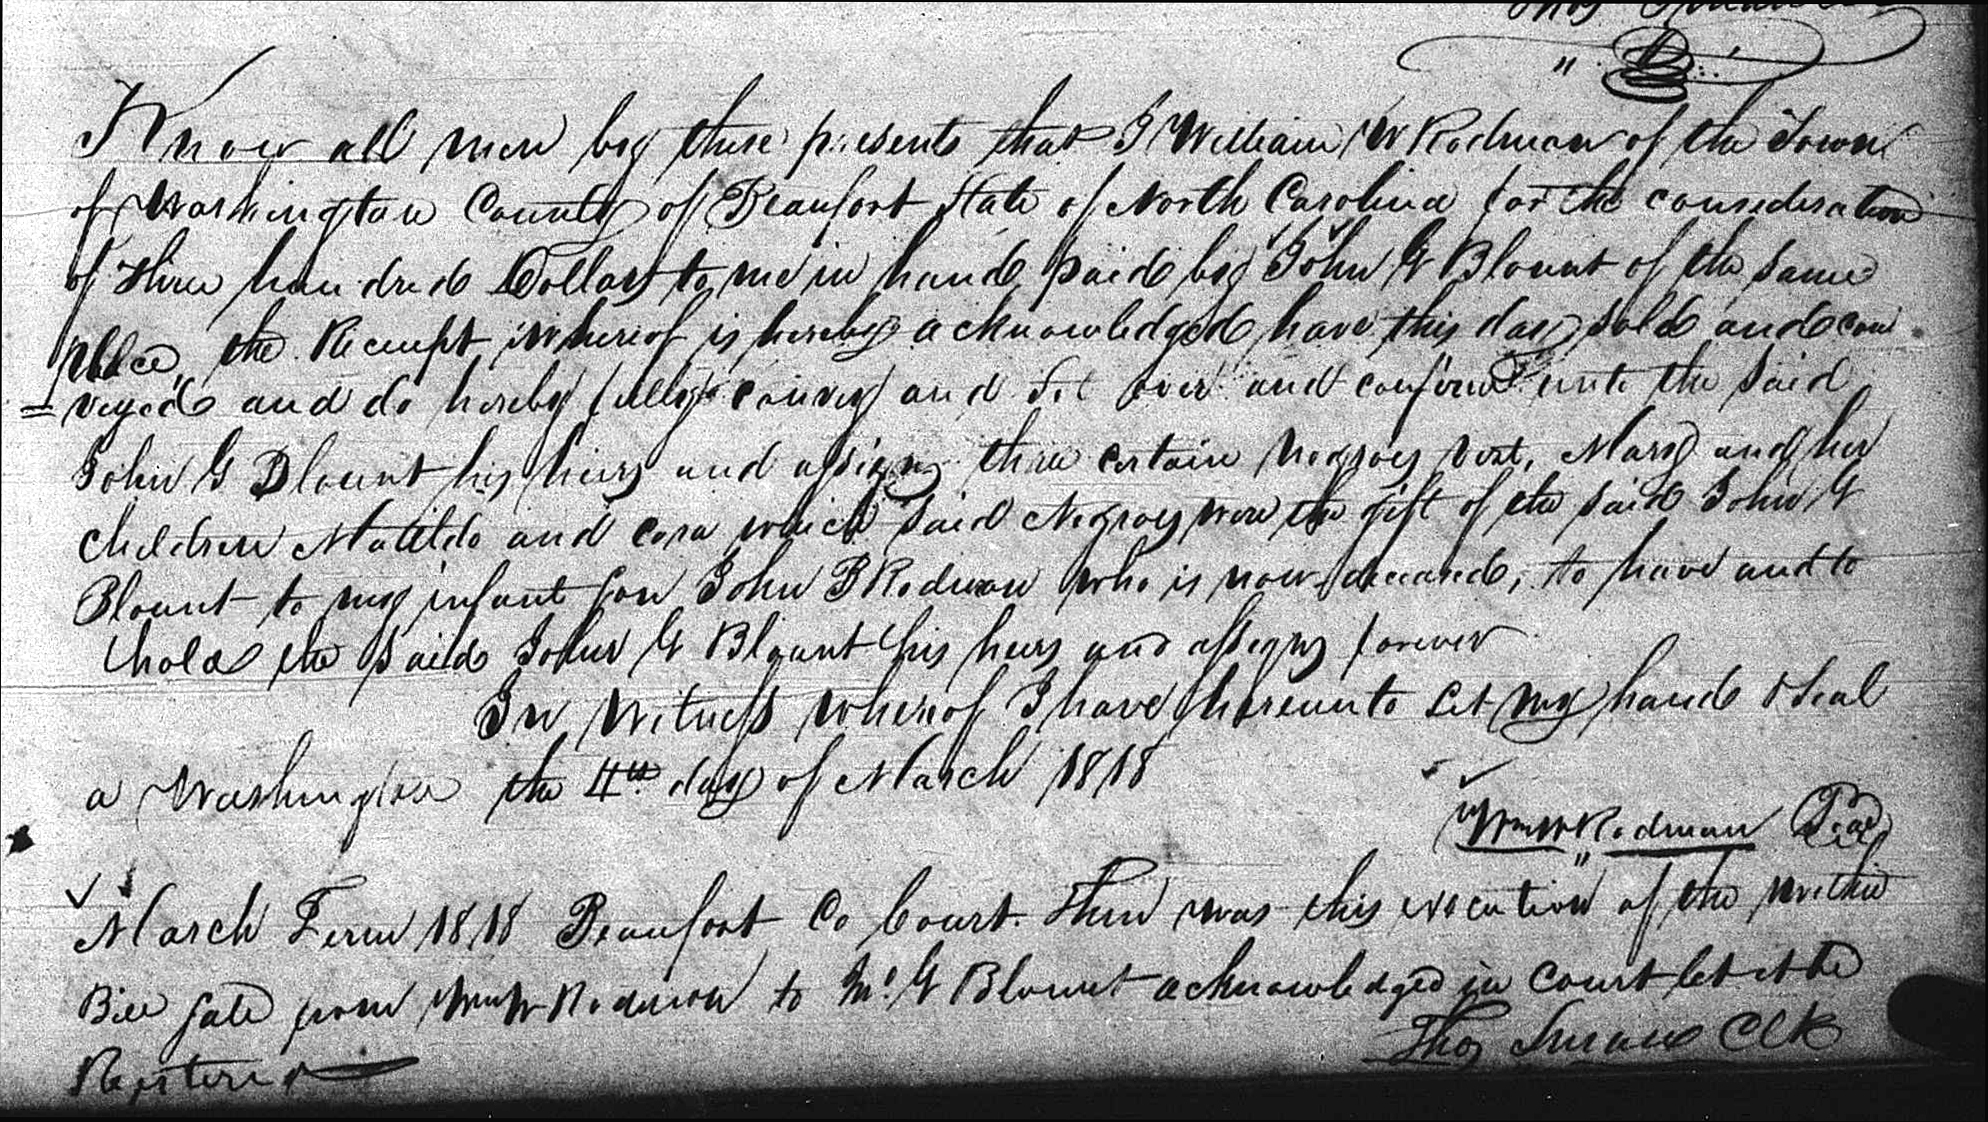 Know all men by these presents that I William W Rodman of the Town
of Washington County of Beaufort State of North Carolina for the consideration
of three hundred Dollars to me in hand paid by John G Blount of the same
place, the Receipt whereof is hereby acknowledged have this day sold and con
= veyed and do hereby fully convey and Set over and confirm unto the said
John G Blount his heirs and assigns three certain Negroes viz. Mary and her
children Matilda and Cora which said Negroes were the gift of the said John G
Blount to my infant son John B Rodman who is now deceased, to have and to
hold the said John G Blount his heirs and assigns forever
In Witness whereof I have hereunto set my hand & seal
a Washington the 4th day of March 1818
Wm W Rodman Seal
March Term 1818 Beaufort Co Court. Then was this execution of the within
Bill Sale from Wm W Rodman to G Blount acknowledged in Court let it be
Registered
Thos Clk